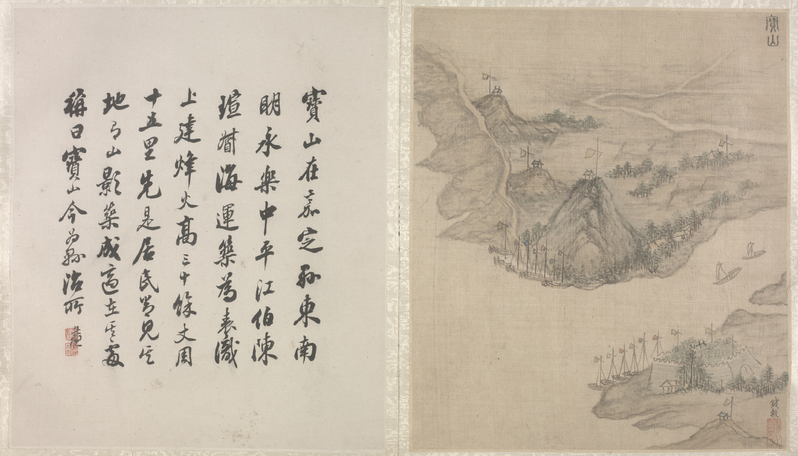 寶山
寶山在嘉定縣東南
明永樂中平江伯陳
瑄督海運築為表識
上建烽火高三十餘丈周
十五里先是居民嘗見其
地有山影築成適在其處
稱曰寶山今為縣治所